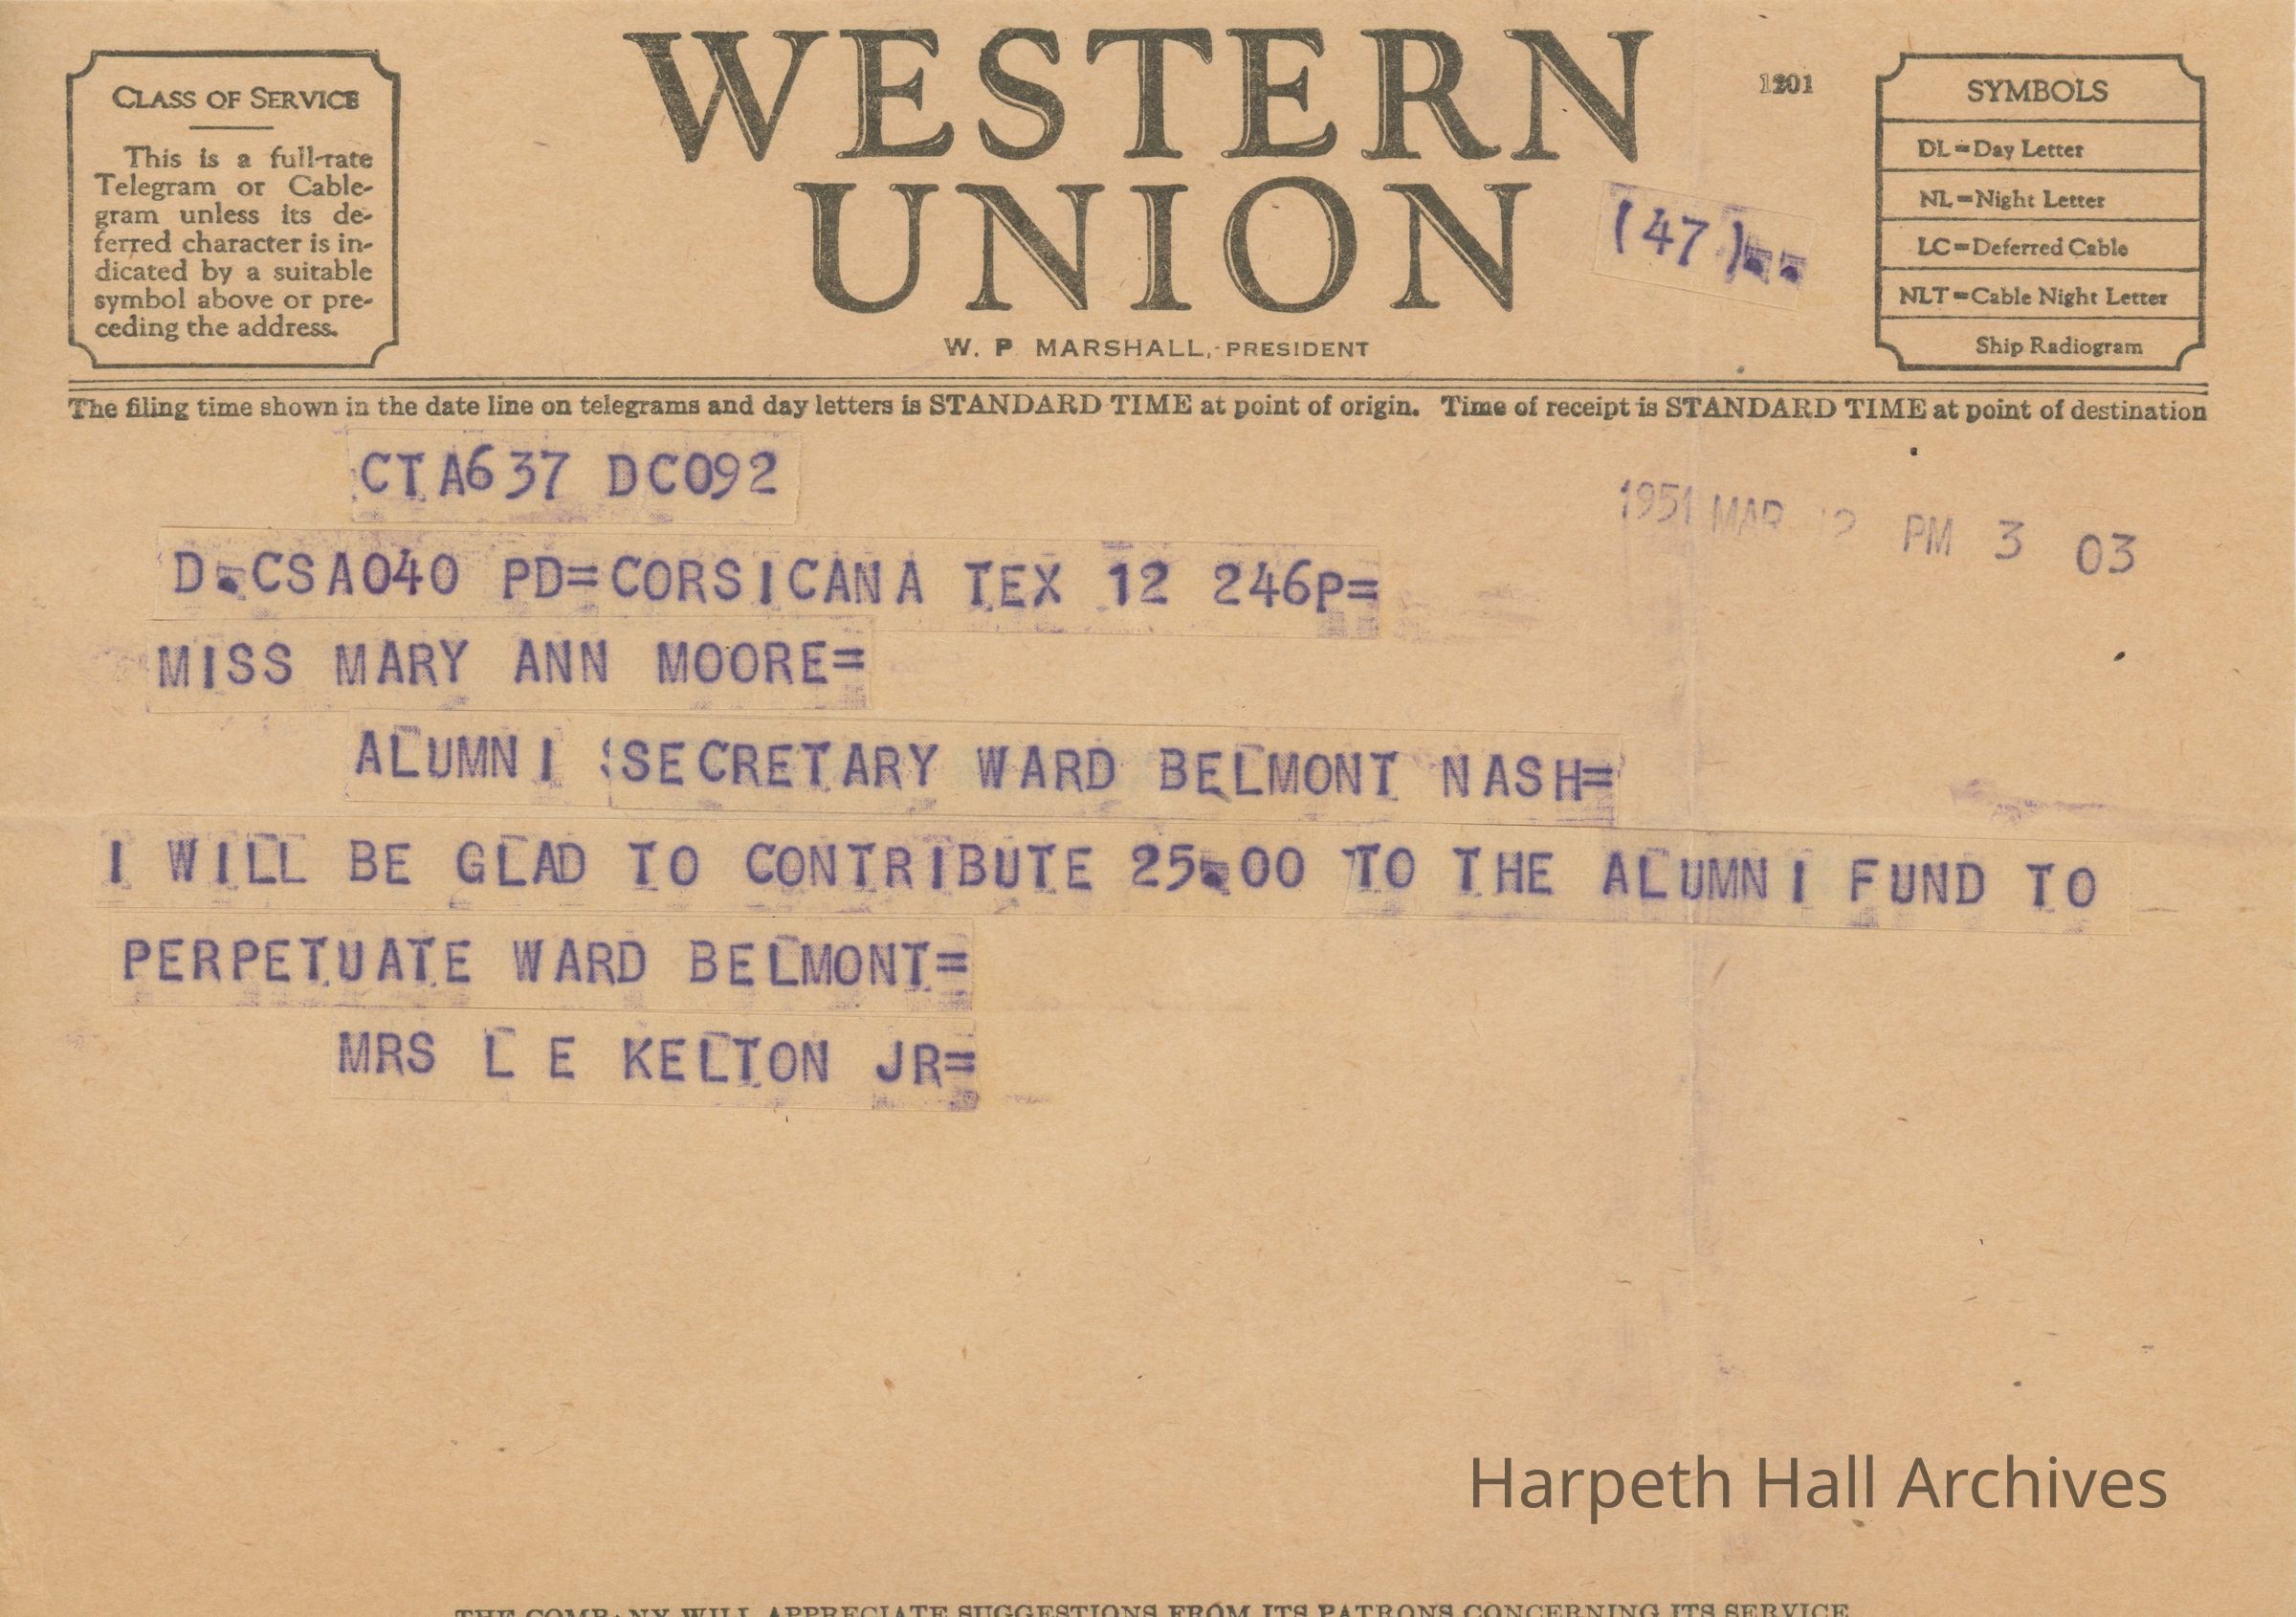 WESTERN
UNION
1201
CLASS OF SERVICE
This is a full-rate
Telegram or Cable-
gram unless its de-
ferred character is in-
dicated by a suitable
symbol above or pre-
ceding the address.
(47)
SYMBOLS
DL=Day Letter
NL=Night Letter
LC=Deferred Cable
NLT=Cable Night Letter
Ship Radiogram
W. P MARSHALL, PRESIDENT
The filing time shown in the date line on telegrams and day letters is STANDARD TIME at point of origin. Time of receipt is STANDARD TIME at point of destination
CTA637 DC092
1951 MAR 12 PM 3 03
D.CSA040 PD=CORSICANA TEX 12 246P=
MISS MARY ANN MOORE=
ALUMNI SECRETARY WARD BELMONT NASH=
I WILL BE GLAD TO CONTRIBUTE 25.00 TO THE ALUMNI FUND TO
PERPETUATE WARD BELMONT=
MRS L E KELTON JR=
Harpeth Hall Archives
THE COMPANY WILL APPRECIATE SUGGESTIONS FROM ITS PATRONS CONCERNING ITS SERVICE